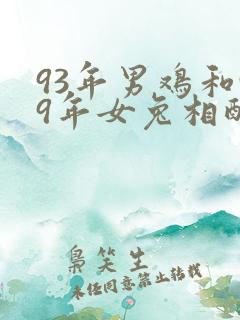 93年男鸡和
9年女兔相配
枭笑生
未经同意禁止转载